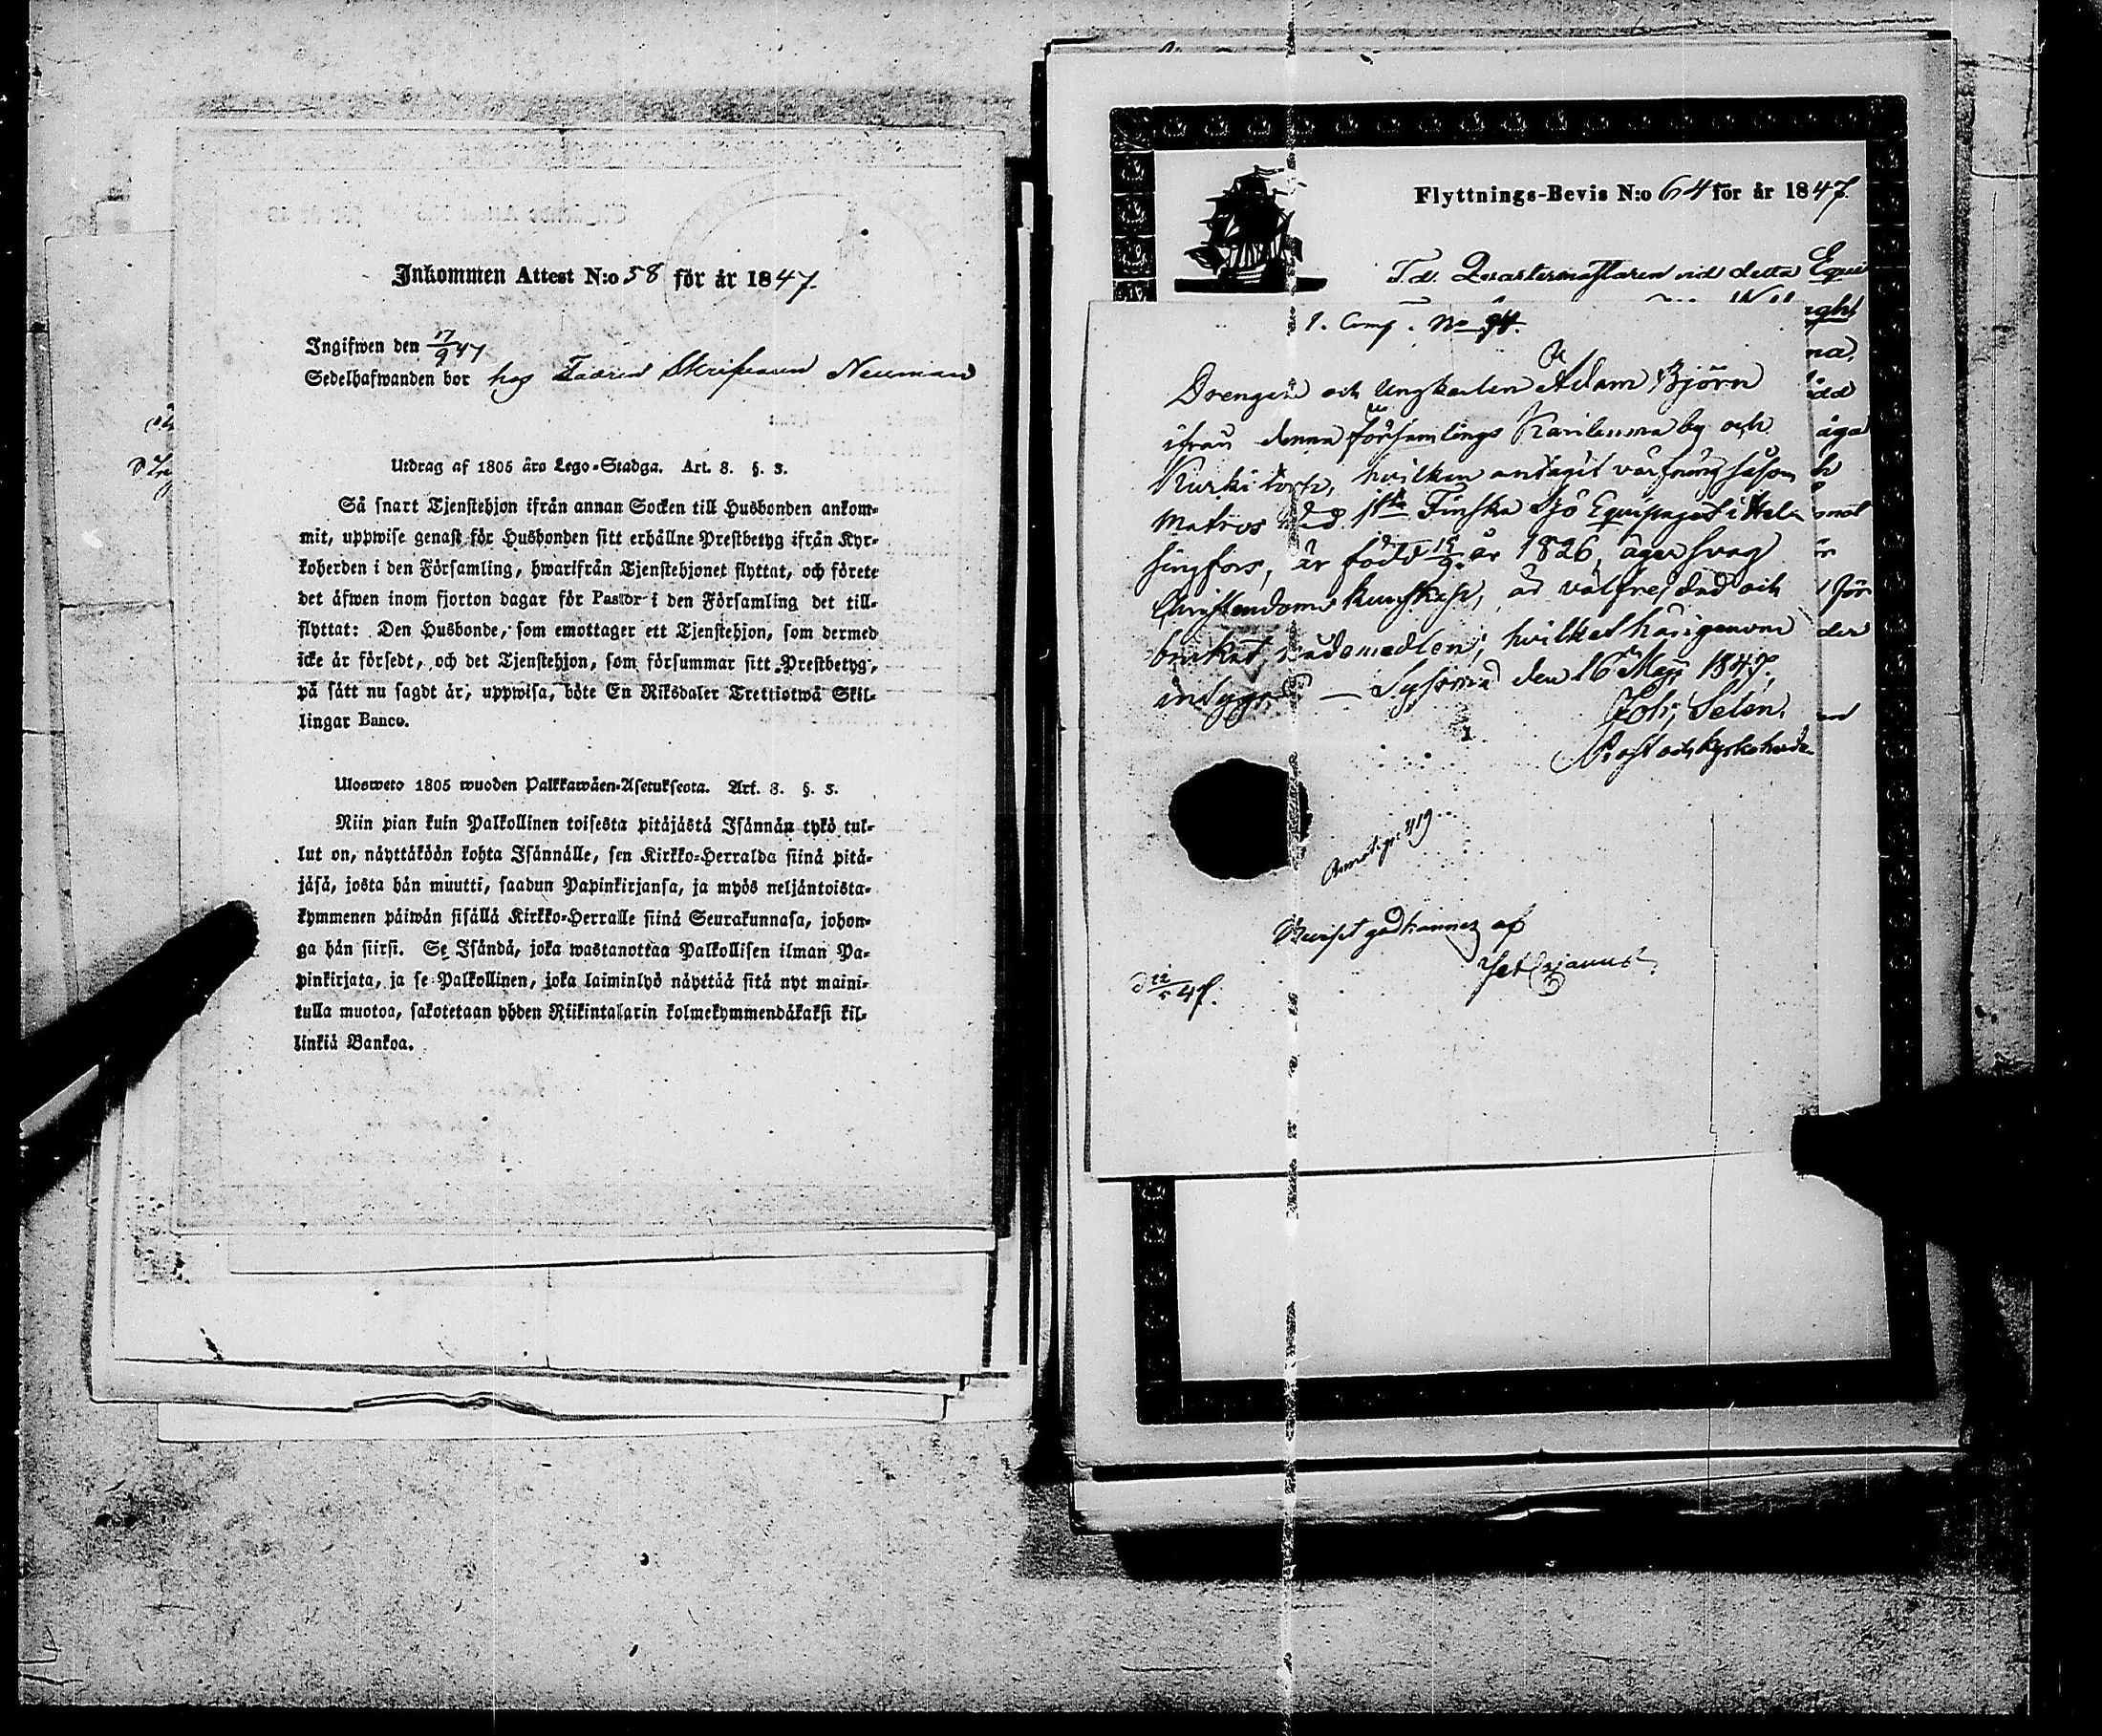 Inkommen Attest N:o 58 för år 1847.
Ingifwen den 17/9 47
Sedelhafwanden bor hos Skrifvaren Neuman
Utdrag af 1805 års Lego-Stadga. Art. 8. §. 3.
Så snart Tjenstehjon ifrån annan Socken till Husbonden ankom-
mit, uppwise genast för Husbonden sitt erhållne Prestbetyg ifrån Kyr-
koherden i den Församling, hwarifrån Tjenstehjonet flyttat, och förete
det åfwen inom fjorton dagar för Pastor i den Församling det till-
flyttat: Den Husbonde, som emottager ett Tjenstehjon, som dermed
icke är försedt, och det Tjenstehjon, som försummar sitt Prestbetyg,
på sätt nu sagdt är, uppwisa, böte En Riksdaler Trettiotwå Skil-
lingar Banco.
Ulosweto 1805 wuoden Palkkawäen-Asetuksesta. Art. 8. §. 3.
Niin pian kuin Palkollinen toisesta pitäjästä Isännän tykö tul-
lut on, näyttäköön kohta Isännälle, sen Kirkko-Herralda siinä pitä-
jäsä, josta hän muutti, saadun Papinkirjansa, ja myös neljäntoista-
kymmenen päiwän sisällä Kirkko-Herralle siinä Seurakunnasa, johon-
ga hän siirsi. Se Isändä, joka wastanottaa Palkollisen ilman Pa-
pinkirjata, ja se Palkollinen, joka laiminlyö näyttää sitä nyt maini-
tulla muotoa, sakotetaan yhden Riikintalarin kolmekymmendäkaksi kil-
linkiä Bankoa.
Flyttnings-Bevis N:o 64 för år 1847.
F.d. Quartermästaren vid detta Equi
1. Comp. No 94.
Drengen och Ungkarlen Adam Björn
ifrån denna församlings Karilanma by och
Kurki torp, hvilken antagit värfning såsom
Matros vid 1sta Finska Sjö Equipaget i Hel-
singfors, är född 15/9 år 1826, äger svag
Christendoms kunskap, är välfrejdad och
brukat nådemedlen; hvilket härigenom
intygas. — Sysmä den 16 Maji 1847.
Joh. Selén.
Prost och Kyrkoherde
Beviset godkännes af
d 22/5 47.